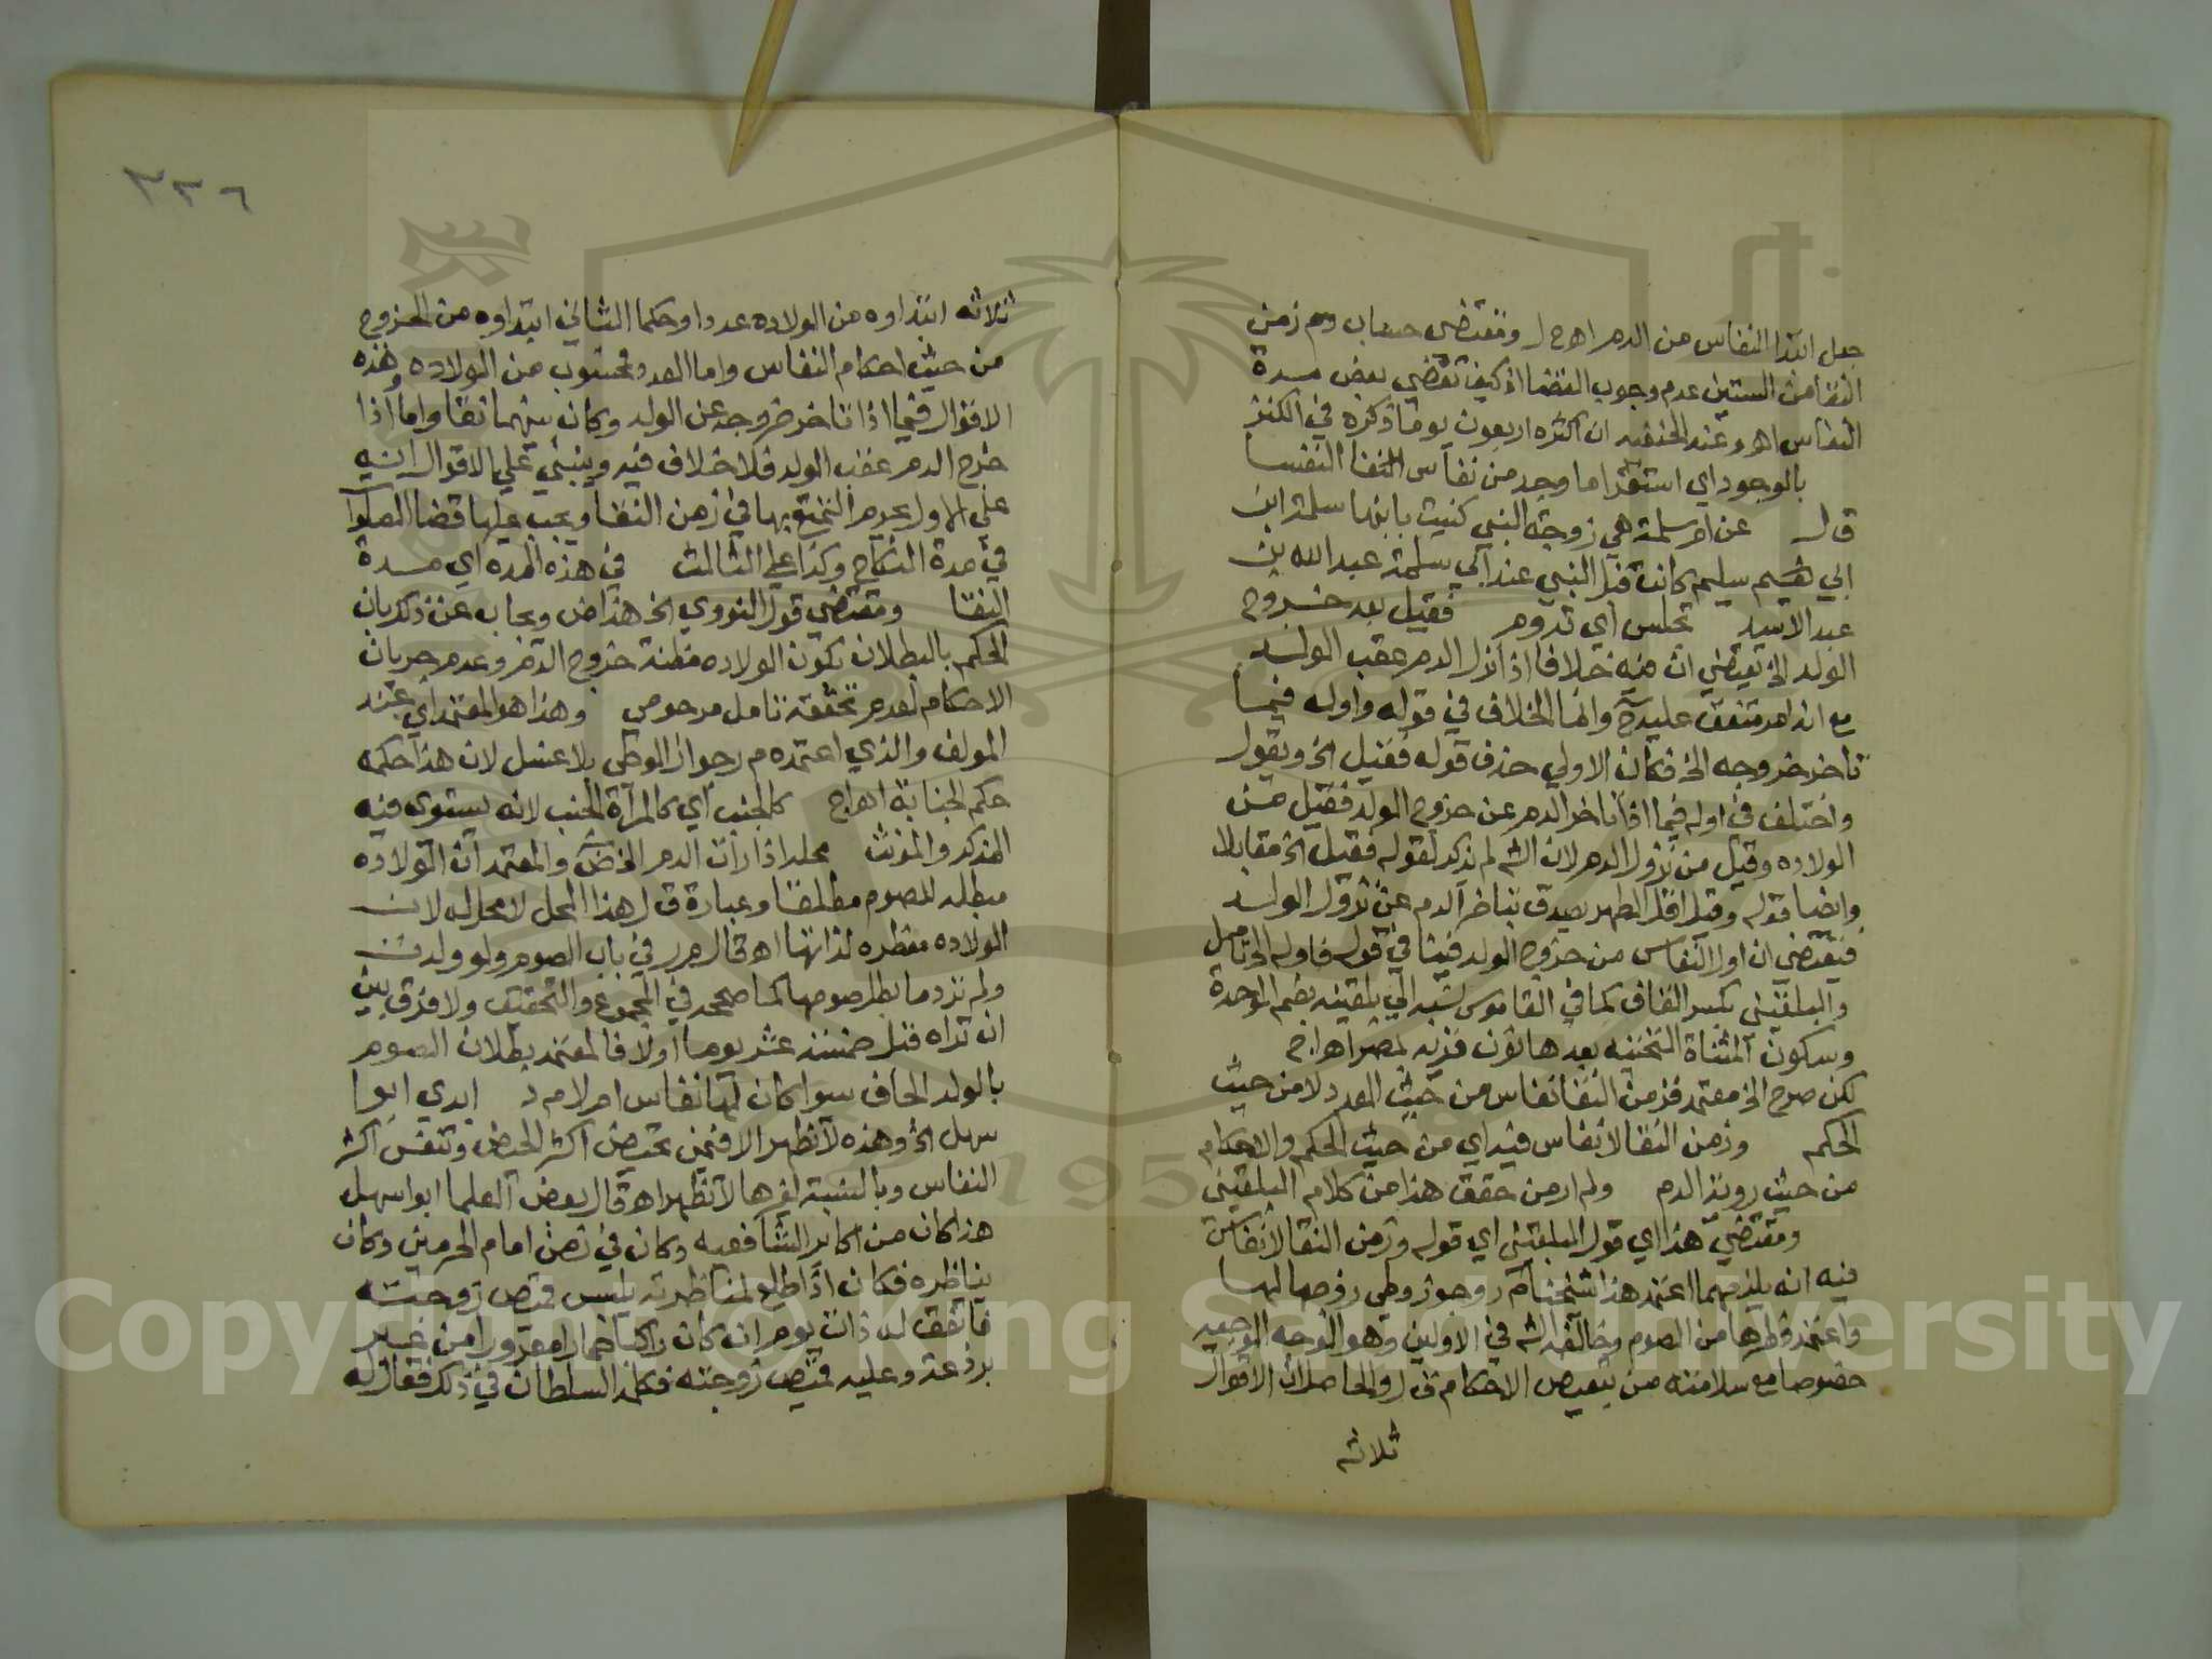 جعل ابتدا النفاس من الدم اهـ ح ل ومقتضى حساب م ر زمن
النقا من الستين عدم وجوب القضا اذ كيف تقضي بعض مدة
النفاس اهـ وعند الحنفيه ان اكثره اربعون يوما ذكره في الكنز
بالوجود اي استقرا ما وجد من نفاس النسا النفسا
ق ل عن ام سلمة هي زوجة النبي كنيت بابنها سلمة ابن
ابي سليم كانت قبل النبي عند ابي سلمة عبد الله بن
عبد الاسد تجلس اي تدوم فقيل بعد خروج
الولد الخ يقتضي ان فيه خلافا اذا نزل الدم عقب الولد
مع انه امر متفق عليه وانما الخلاف في قوله واوله فيما
تاخر خروجه الخ فكان الاولي حذف قوله فقيل الخ ويقول
واختلف في اوله فيما اذا تاخر الدم عن خروج الولد فقيل من
الولاده وقيل من نزول الدم لان الش لم يذكر لقوله فقيل الخ مقابلا
وايضا قوله وقبل اقل الطهر يصدق بتاخر الدم عن نزول الولد
فيقتضي ان اول النفاس من خروج الولد في قوله فاوله الخ تامل
والبلقيني بكسر القاف كما في القاموس نسبه الي بلقينه بضم الموحدة
وسكون المثناة التحتيه بعدها نون قريه بمصر اهـ ا ج
لكن صرح الخ معتمد فزمن النقا نفاس من حيث العدد لا من حيث
الحكم وزمن النقا لا نفاس فيه اي من حيث الحكم والاحكام
من حيث روية الدم ولم ار من حقق هذا من كلام البلقيني
ومقتضي هذا اي قول البلقيني اي قوله وزمن النقا لا نفاس
فيه انه يلزمهما اعتمد هذا شيخنا م ر وجوز وطي زوجها لها
واعتمد فطرها من الصوم وخالفه الش في الاولين وهو الوجه الوجيه
خصوصا مع سلامته من تبعيض الاحكام ق ل والحاصل ان الاقوال
ثلاثه
٣٣٦
ثلاثه ابتداوه من الولاده عددا وحكما الثاني ابتداوه من الخروج
من حيث احكام النفاس واما العدد فمحسوب من الولاده وهذه
الاقوال فيما اذا تاخر خروجه عن الولد وكان بينهما نقا واما اذا
خرج الدم عقب الولد فلا خلاف فيه وينبني علي الاقوال انه
علي الاول يحرم التمتع بها في زمن النقا ويجب عليها قضا الصلوا
في مدة النكاح وكذا علي الثالث في هذه المده اي مدة
النقا ومقتضي قول النووي الخ هذا ض ويجاب عن ذلك بان
الحكم بالبطلان لكون الولاده مظنة خروج الدم وعدم جريان
الاحكام لعدم تحققه تامل مرحومي وهذا هو المعتمد اي عند
المولف والذي اعتمده م ر جواز الوطي بلا غسل لان هذا حكمه
حكم الجنابة اهـ ا ج كالجنب اي كالمراة الجنب لانه يستوي فيه
المذكر والمونث محله اذا رات الدم الخ ض والمعتمد ان الولاده
مبطله للصوم مطلقا وعبارة ق ل هذا المحل لا محل له لان
الولاده مفطره لذاتها اهـ قال م ر في باب الصوم ولو ولدت
ولم تر دما بطل صومها كما صححه في المجموع والتحقيق ولا فرق بين
ان تراه قبل خمسة عشر يوما اولا فالمعتمد بطلان الصوم
بالولد الجاف سوا كان لها نفاس ام لا م د ابدي ابوا
سهل الخ وهذه لا تظهر الا فيمن تحيض اكثر الحيض وتنفس اكثر
النفاس وبالنسبة لغيرها لا تظهر اهـ قال بعض العلما ابوا سهل
هذا كان من اكابر الشافعيه وكان في زمن امام الحرمين وكان
يناظره فكان اذا طلع لمناظرته يلبس قميص زوجته
فاتفق له ذات يوم انه كان راكبا حمارا معرورا من غير
برذعة وعليه قميص زوجته فكلمه السلطان في ذلك فقال له